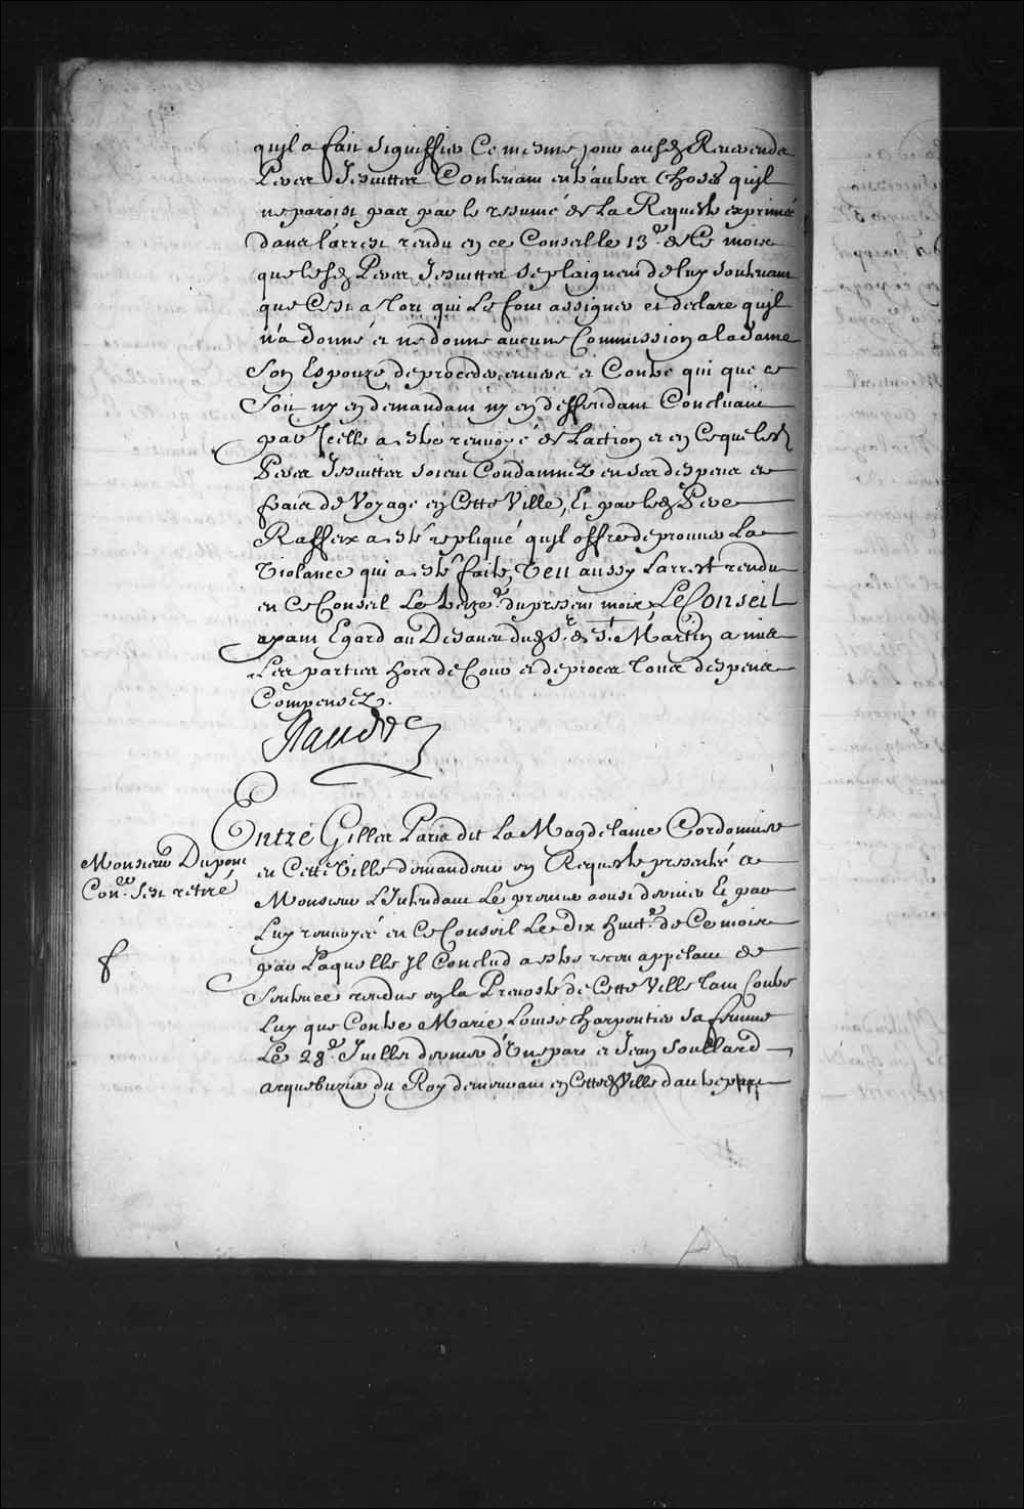 qu'jl a fait signiffier Ce mesme jour ausd Reverends
Peres Jesuittes Contenant en d'autres Choses qu'jl
ne paroist pas par le resumé de La Requeste exprimée
dans l'arrest rendu en ce Conseil le 13e de Ce mois
que lesd Peres Jesuittes se plaignent de luy soutenant
que C'est a tort qui Le font assigner et declare qu'jl
n'a donné et ne donne aucune Commission a la dame
Son Espouze de proceder envers et Contre qui que ce
Soit ny en demandant ny en deffendant Concluant
par Jcelle a estre renvoyé de L'action et en Ce que lesd
Peres Jesuittes soient Condamnez en ses despens et
frais de Voyage en Cette Ville, Et par led Pere
Raffeix a esté repliqué qu'jl offre de prouver La
Violance qui a esté faite, Veu aussy L'arrest rendu
en Ce Conseil Le treize du present mois Le Conseil
ayant Egard au Desaveu dud Sr de St Martin a mis
Les parties hors de Cour et de proces Tous despens
Compensez.
Entre Gilles Paris dit La Magdelaine Cordonnier
Monsieur Dupont
en Cette Ville demandeur en Requeste presenté a
Coner s'est retiré
Monsieur L'Intendant Le premier aoust dernier Et par
Luy renvoyée en Ce Conseil Le dix huite de Ce mois
par Laquelle Jl Conclud a estre receu appelant de
Sentence rendue en la Prevosté de Cette Ville tant Contre
Luy que Contre Marie Louise Charpentier sa femme
Le 28e Juillet dernier d'Une part et Jean Soullard
arquebuzier du Roy demeurant en Cetted Ville d'autre part